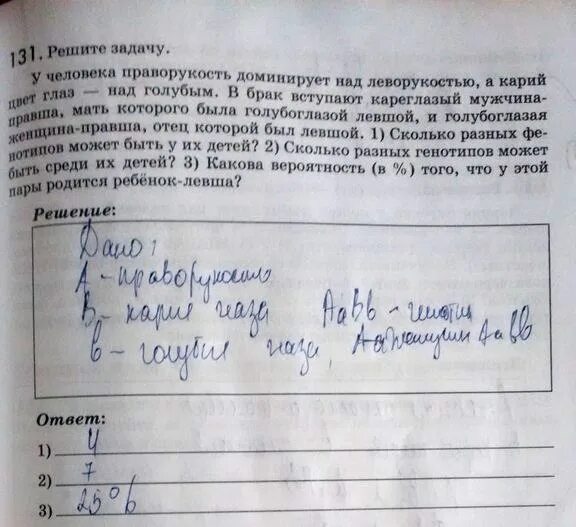 131. Решите задачу.
У человека праворукость доминирует над леворукостью, а карий
цвет глаз — над голубым. В брак вступают кареглазый мужчина-
правша, мать которого была голубоглазой левшой, и голубоглазая
женщина-правша, отец которой был левшой. 1) Сколько разных фе-
нотипов может быть у их детей? 2) Сколько разных генотипов может
быть среди их детей? 3) Какова вероятность (в %) того, что у этой
пары родится ребёнок-левша?
Решение:
Дано:
А - праворукость
В - карие глаза АаВb - генотип
b - голубые глаза, АаВb
Ответ:
1) 4
2) 7
3) 25%